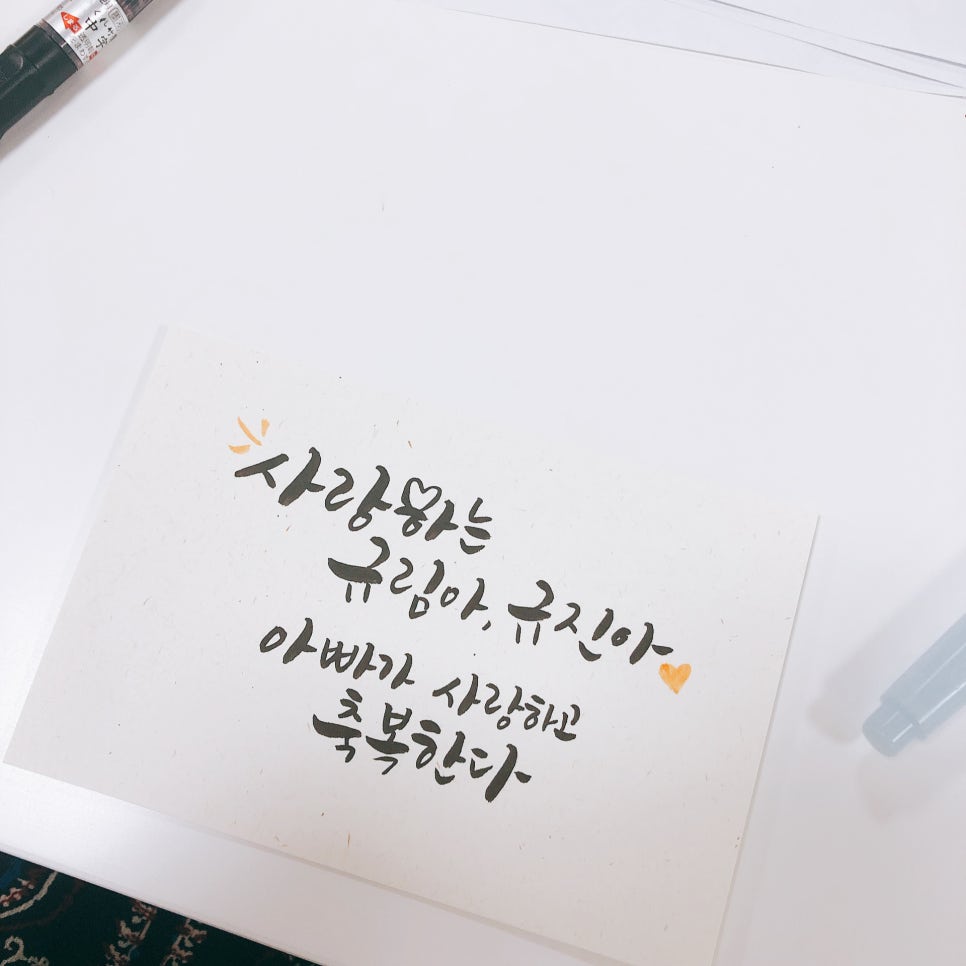 中字
사랑하는
규림아, 규진아
아빠가 사랑하고
축복한다